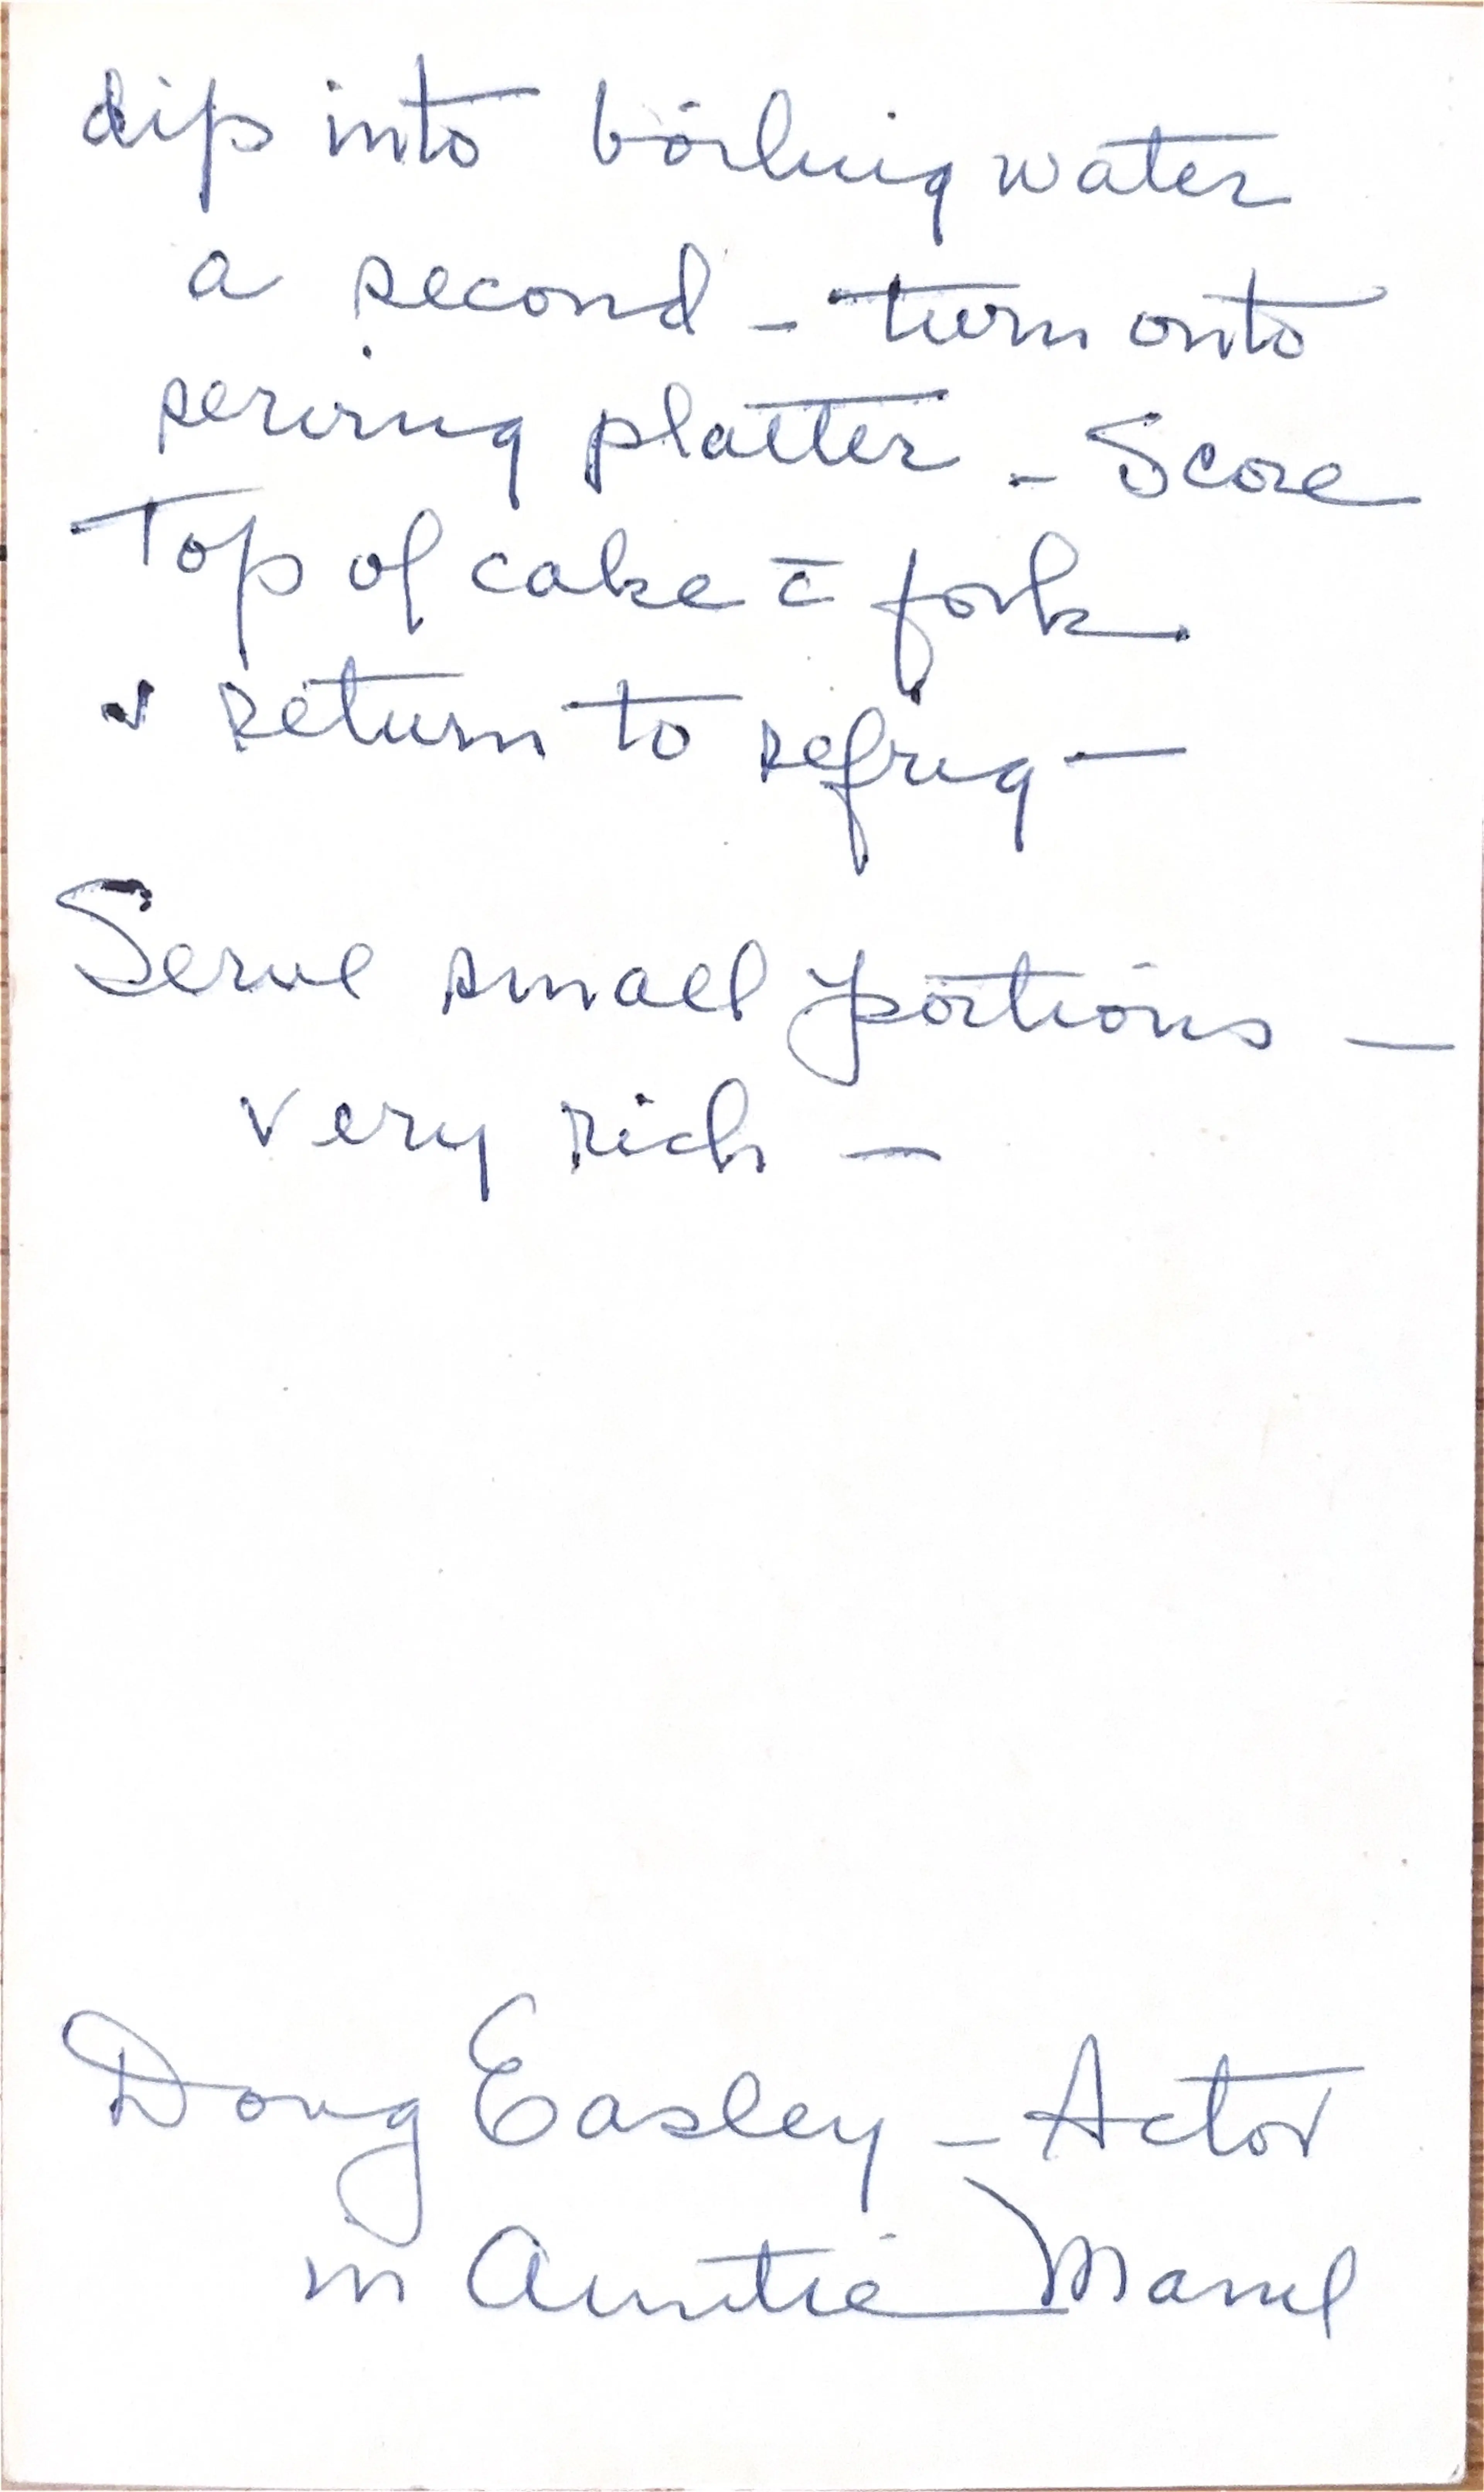 dip into boiling water
a second - turn onto
serving platter - Score
Top of cake c̄ fork
& return to refrig -
Serve small portions -
very rich -
Doug Easley - Actor
in Auntie Mame